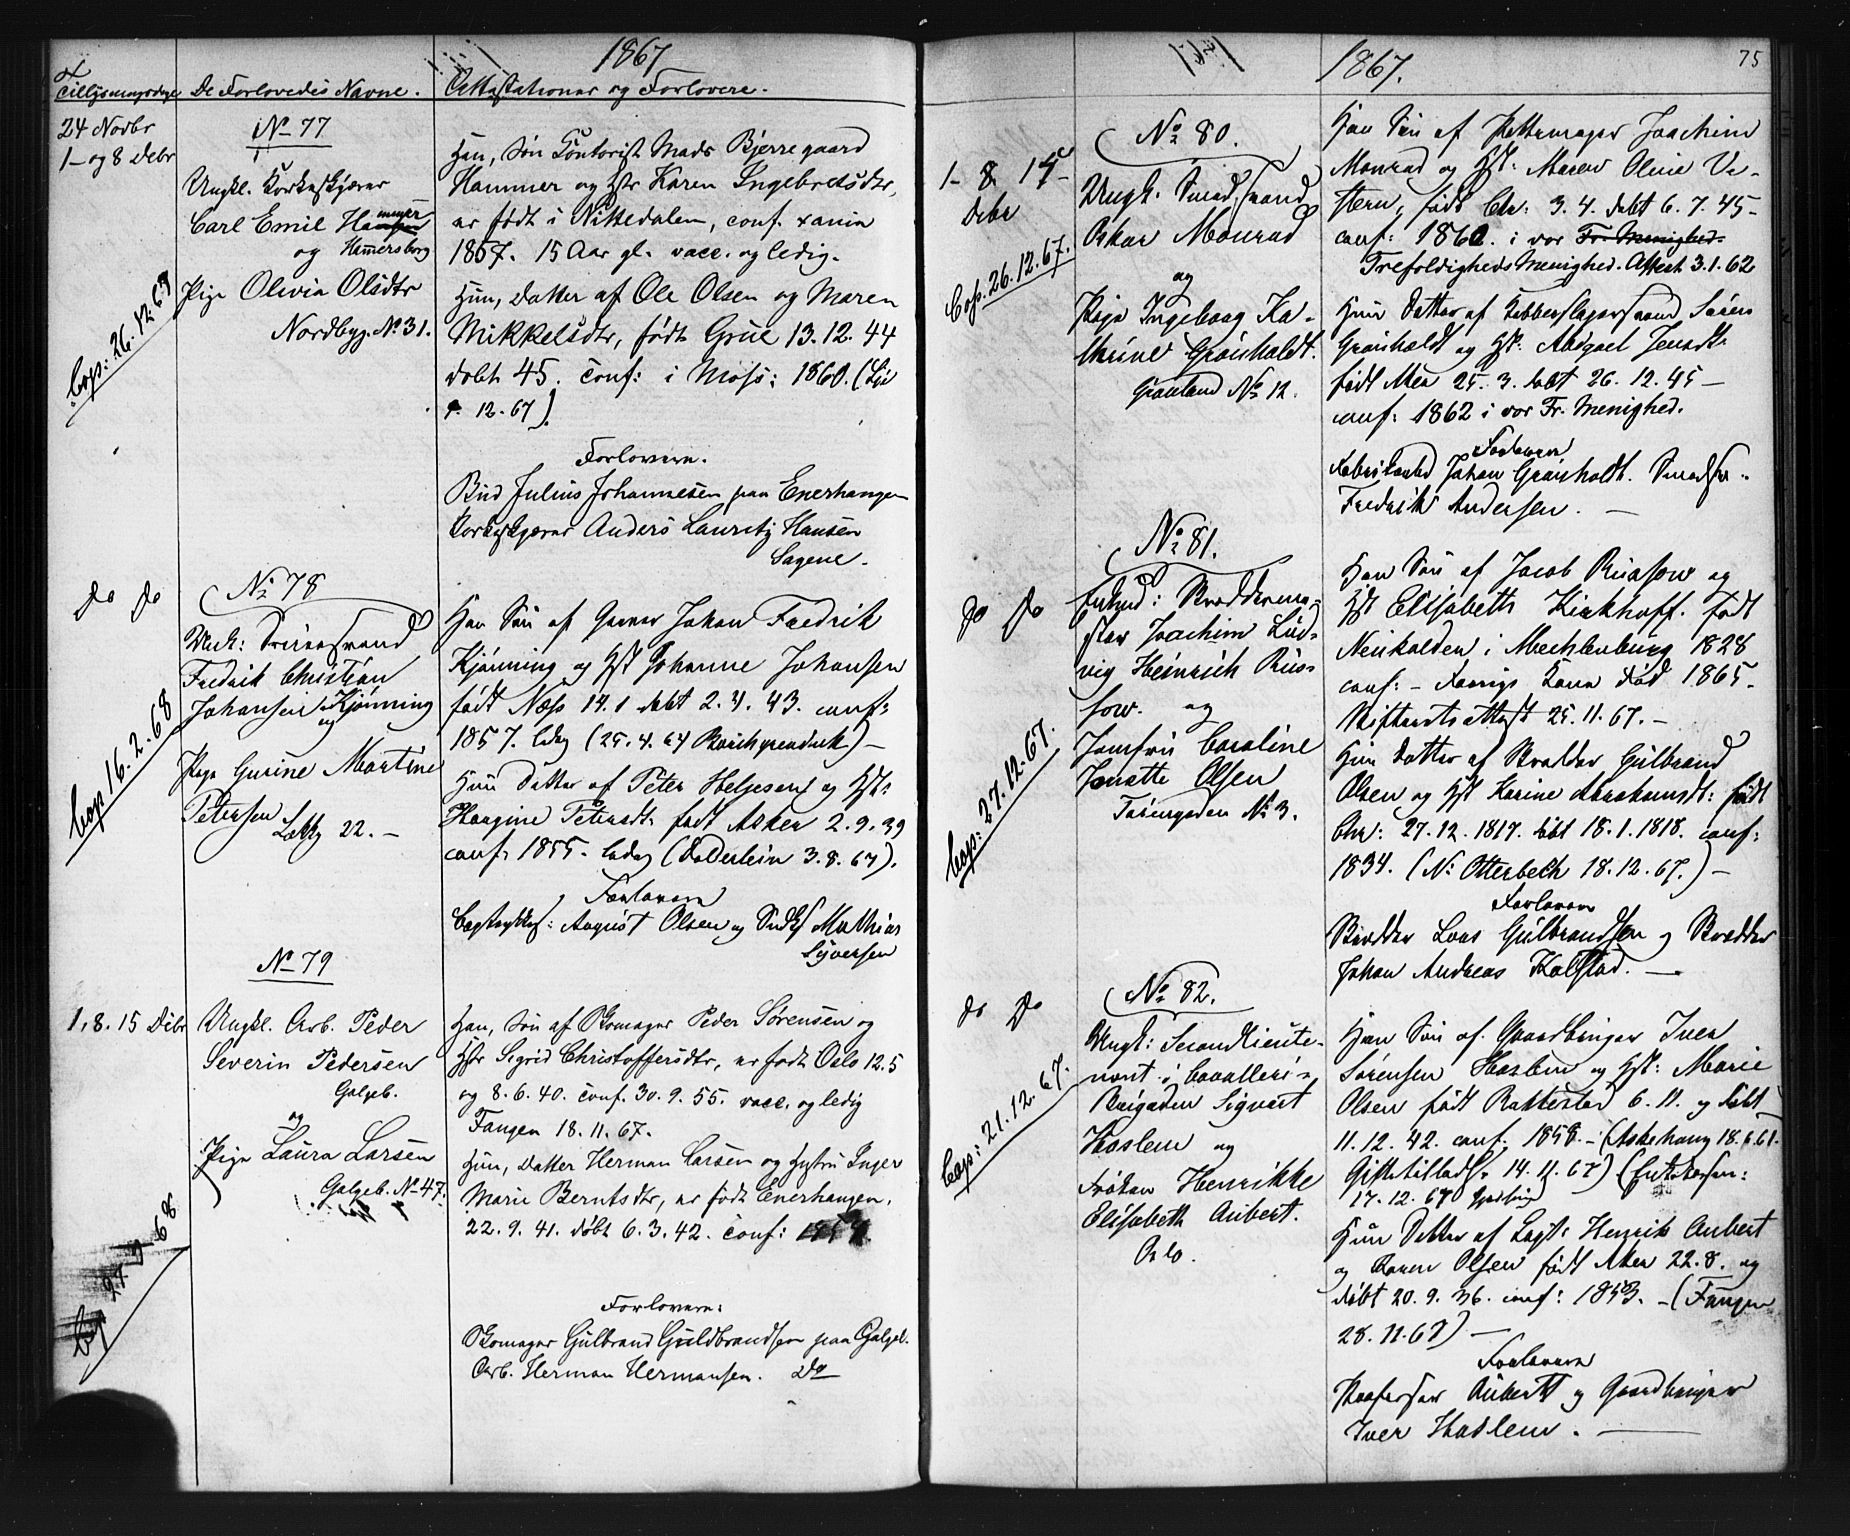 1867
Tillysningsdage De Forlovedes Navne. Attestationer og Forlovere.
24 Novbr
1- og 8 Debr
No 77
Ungkl. Korkeskjærer
Carl Emil Hammer
og Hammersborg
Pige Olivia Olsdtr
Nordbyg. No 31.
Cop: 26.12.67
Han, Søn Contorist Mads Bjerregaard
Hammer og Hstr Karen Ingebretsdtr,
er født i Nittedalen, conf. xania
1857. 15 Aar gl. vacc. og ledig.
Hun, Datter af Ole Olsen og Maren
Mikkelsdtr, født Grue 13.12.44
døbt 45. conf: i Moss: 1860.
12.67)
Forlovere.
Bud Julius Johannesen paa Enerhaugen
Korkeskjærer Anders Lauritz Hansen
Sagene.
Do Do
No 78
Fredrik Christian
Johansen Kjønning
og
Pige Gurine Martine
Petersen
22. -
Cop 16.2.68
Han Søn af Garver Johan Fredrik
Kjønning og Hst Johanne Johansen
født Næss 14.1 døbt 2.4.43. conf:
1857. ledig (25.4.64
Hun Datter af Peter Helgesen og Hst:
Haagine Petersdt: født Asker 2.9.39
conf: 1855. ledig (Døderlein 3.8.67).
Forlovere
August Olsen og Mathias
Syversen
No 79
1, 8. 15 Debr
Ungkl. Arb. Peder
Severin Pedersen
Galgeb.
og
Pige Laura Larsen
Galgeb. No 47.
Han, Søn af Skomager Peder Sørensen og
Hstr Sigrid Christoffersdtr, er født Oslo 12.5
og 8.6.40. conf. 30.9.55. vacc. og ledig
Fangen 18.11.67.
Hun, Datter Herman Larsen og Hustru Inger
Marie Berntsdtr, er født Enerhaugen.
22.9.41. døbt 6.3.42. conf:
Forlovere:
Skomager Gulbrand Guldbrandsen paa Galgeb.
Arb. Herman Hermansen. Do
1867.
75
1- 8 15-
Debr
No 80.
Ungk: Smedsvend
Oskar Monrad
og
Pige Ingeborg Ka-
thrine Grønholdt.
Grønland No 12.
Cop: 26.12.67.
Han Søn af Pottemager Joachim
Monrad og Hst: Maren Oline Ve-
stern, født Chr: 3.4. døbt 6.7.45-
conf: 1860. i vor Fr. Menighed.
Trefoldigheds Menighed. Attest 3.1.62
Hun Datter af Kobberslagersvend Søren
Grønholdt og Hst: Abigael Jensdt:
født Aker 25.3. døbt 26.12.45-
conf: 1862 i vor Fr. Menighed.
Forlovere
Johan Grønholdt.
Fredrik Andersen. -
Do Do
No 81.
Enkem: Skreddermes-
ster Joachim Lud-
vig Heinrich Rus-
sow. og
Jomfru Caroline
Jenette Olsen
No 3.
Cop: 27.12.67.
Han Søn af Jacob Russow og
Hst Elisabeth Kirkhoff. født
Neukalden i Mechlenburg 1828
conf: - Forrige Kone død 1865-
Skifteretsattest 25.11.67. -
Hun Datter af Skredder Gulbrand
Olsen og Hst Karine Abrahamsdt: født
Chr: 27.12.1817. døbt 18.1.1818. conf:
1834. (N: Otterbech 18.12.67.) -
Forlovere
Skredder Lars Gulbrandsen og Skredder
Johan Andreas Kolstad. -
Do Do
No 82.
Ungk: Secondlieute-
nant i Cavalleri-
Brigaden Sigvart
Haslem og
Frøken Henrikke
Elisabeth Aubert.
Oslo.
Cop: 21.12.67.
Han Søn af Gaardbruger Iver
Sørensen Haslem og Hst: Marie
Olsen født Rakkestad 6.11. og døbt
11.12.42. conf: 1858. -
14.11.67)
17.12.67
Hun Datter af Henrik Aubert
og Karen Olsen født Aker 22.8. og
døbt 20.9.36. conf: 1853. - (Fangen
28.11.67) -
Forlovere
Professor Aubert og Gaardbruger
Iver Haslem. -